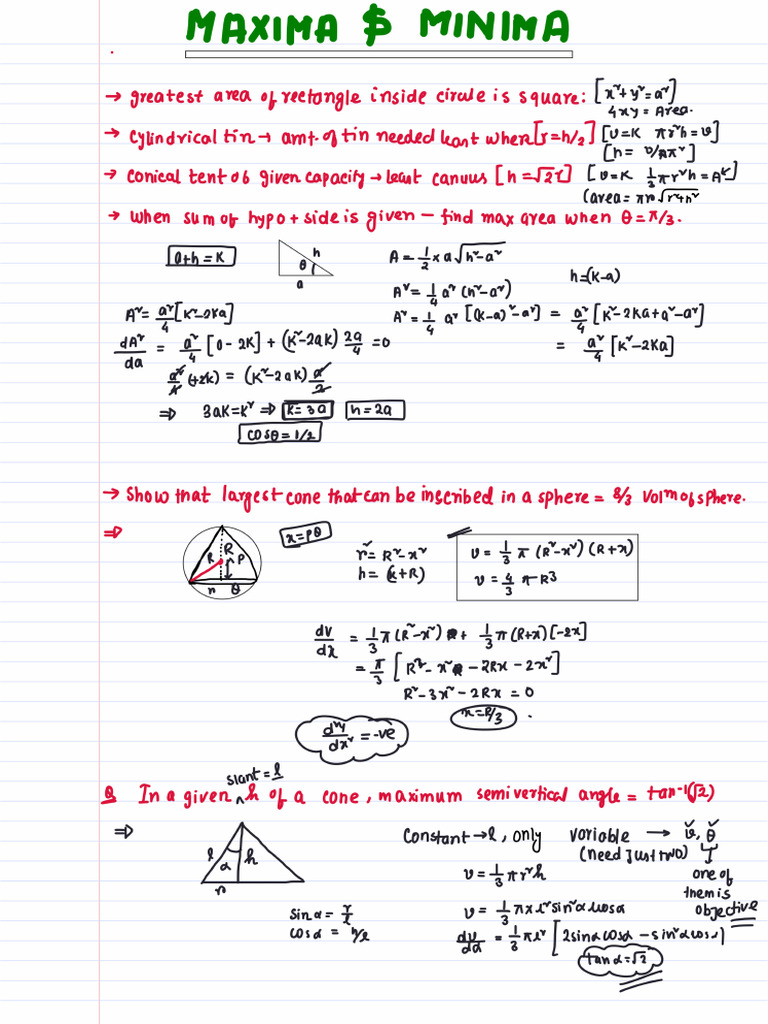 MAXIMA & MINIMA
→ greatest area of rectangle inside circle is square: [x²+y²=a²]
4xy = Area.
→ Cylindrical tin → amt. of tin needed least where [r=h/2] [v=K πr²h=v]
[h= v/πr²]
→ Conical tent of given capacity → least canvas [h=√2r] [v=K 1/3 πr²h = AK]
(area = πr√r²+h²
→ When sum of hypo + side is given – find max area when θ=π/3.
a+h = K
h
θ
a
A = 1/2 × a√h²-a²
h=(k-a)
A² = 1/4 a² (h²-a²)
A² = a²/4 [K²-2Ka]
A² = 1/4 a² [(k-a)²-a²] = a²/4 [K²-2Ka+a²-a²]
dA²/da = a²/4 [0-2K] + (K²-2aK) 2a/4 = 0
= a²/4 [K²-2Ka]
a²/4 (+2k) = (K²-2aK) a/2
⇒ 3aK=K² ⇒ K=3a h=2a
cosθ=1/2
→ Show that largest cone that can be inscribed in a sphere = 8/3 Volm of sphere.
⇒
x=PQ
R
R
P
r
Q
r²= R²-x²
h= (x+R)
v = 1/3 π (R²-x²)(R+x)
v = 4/3 πR3
dv/dx = 1/3 π(R²-x²) + 1/3 π(R+x)[-2x]
= π/3 [R²-x²-2Rx-2x²]
R²-3x²-2Rx = 0
x=R/3 .
d²y/dx² = -ve
slant = l
Q In a given h of a cone, maximum semivertical angle = tan-1(√2)
⇒
l
α
h
r
Constant → l, only variable → v, θ
(need just two)
one of
them is
objective
v = 1/3 πr²h
sinα = r/l
cosα = h/l
v = 1/3 π×l²sin²α cosα
dv/dα = 1/3 πl² [2sinα cosα - sin²α cosα]
tanα=√2